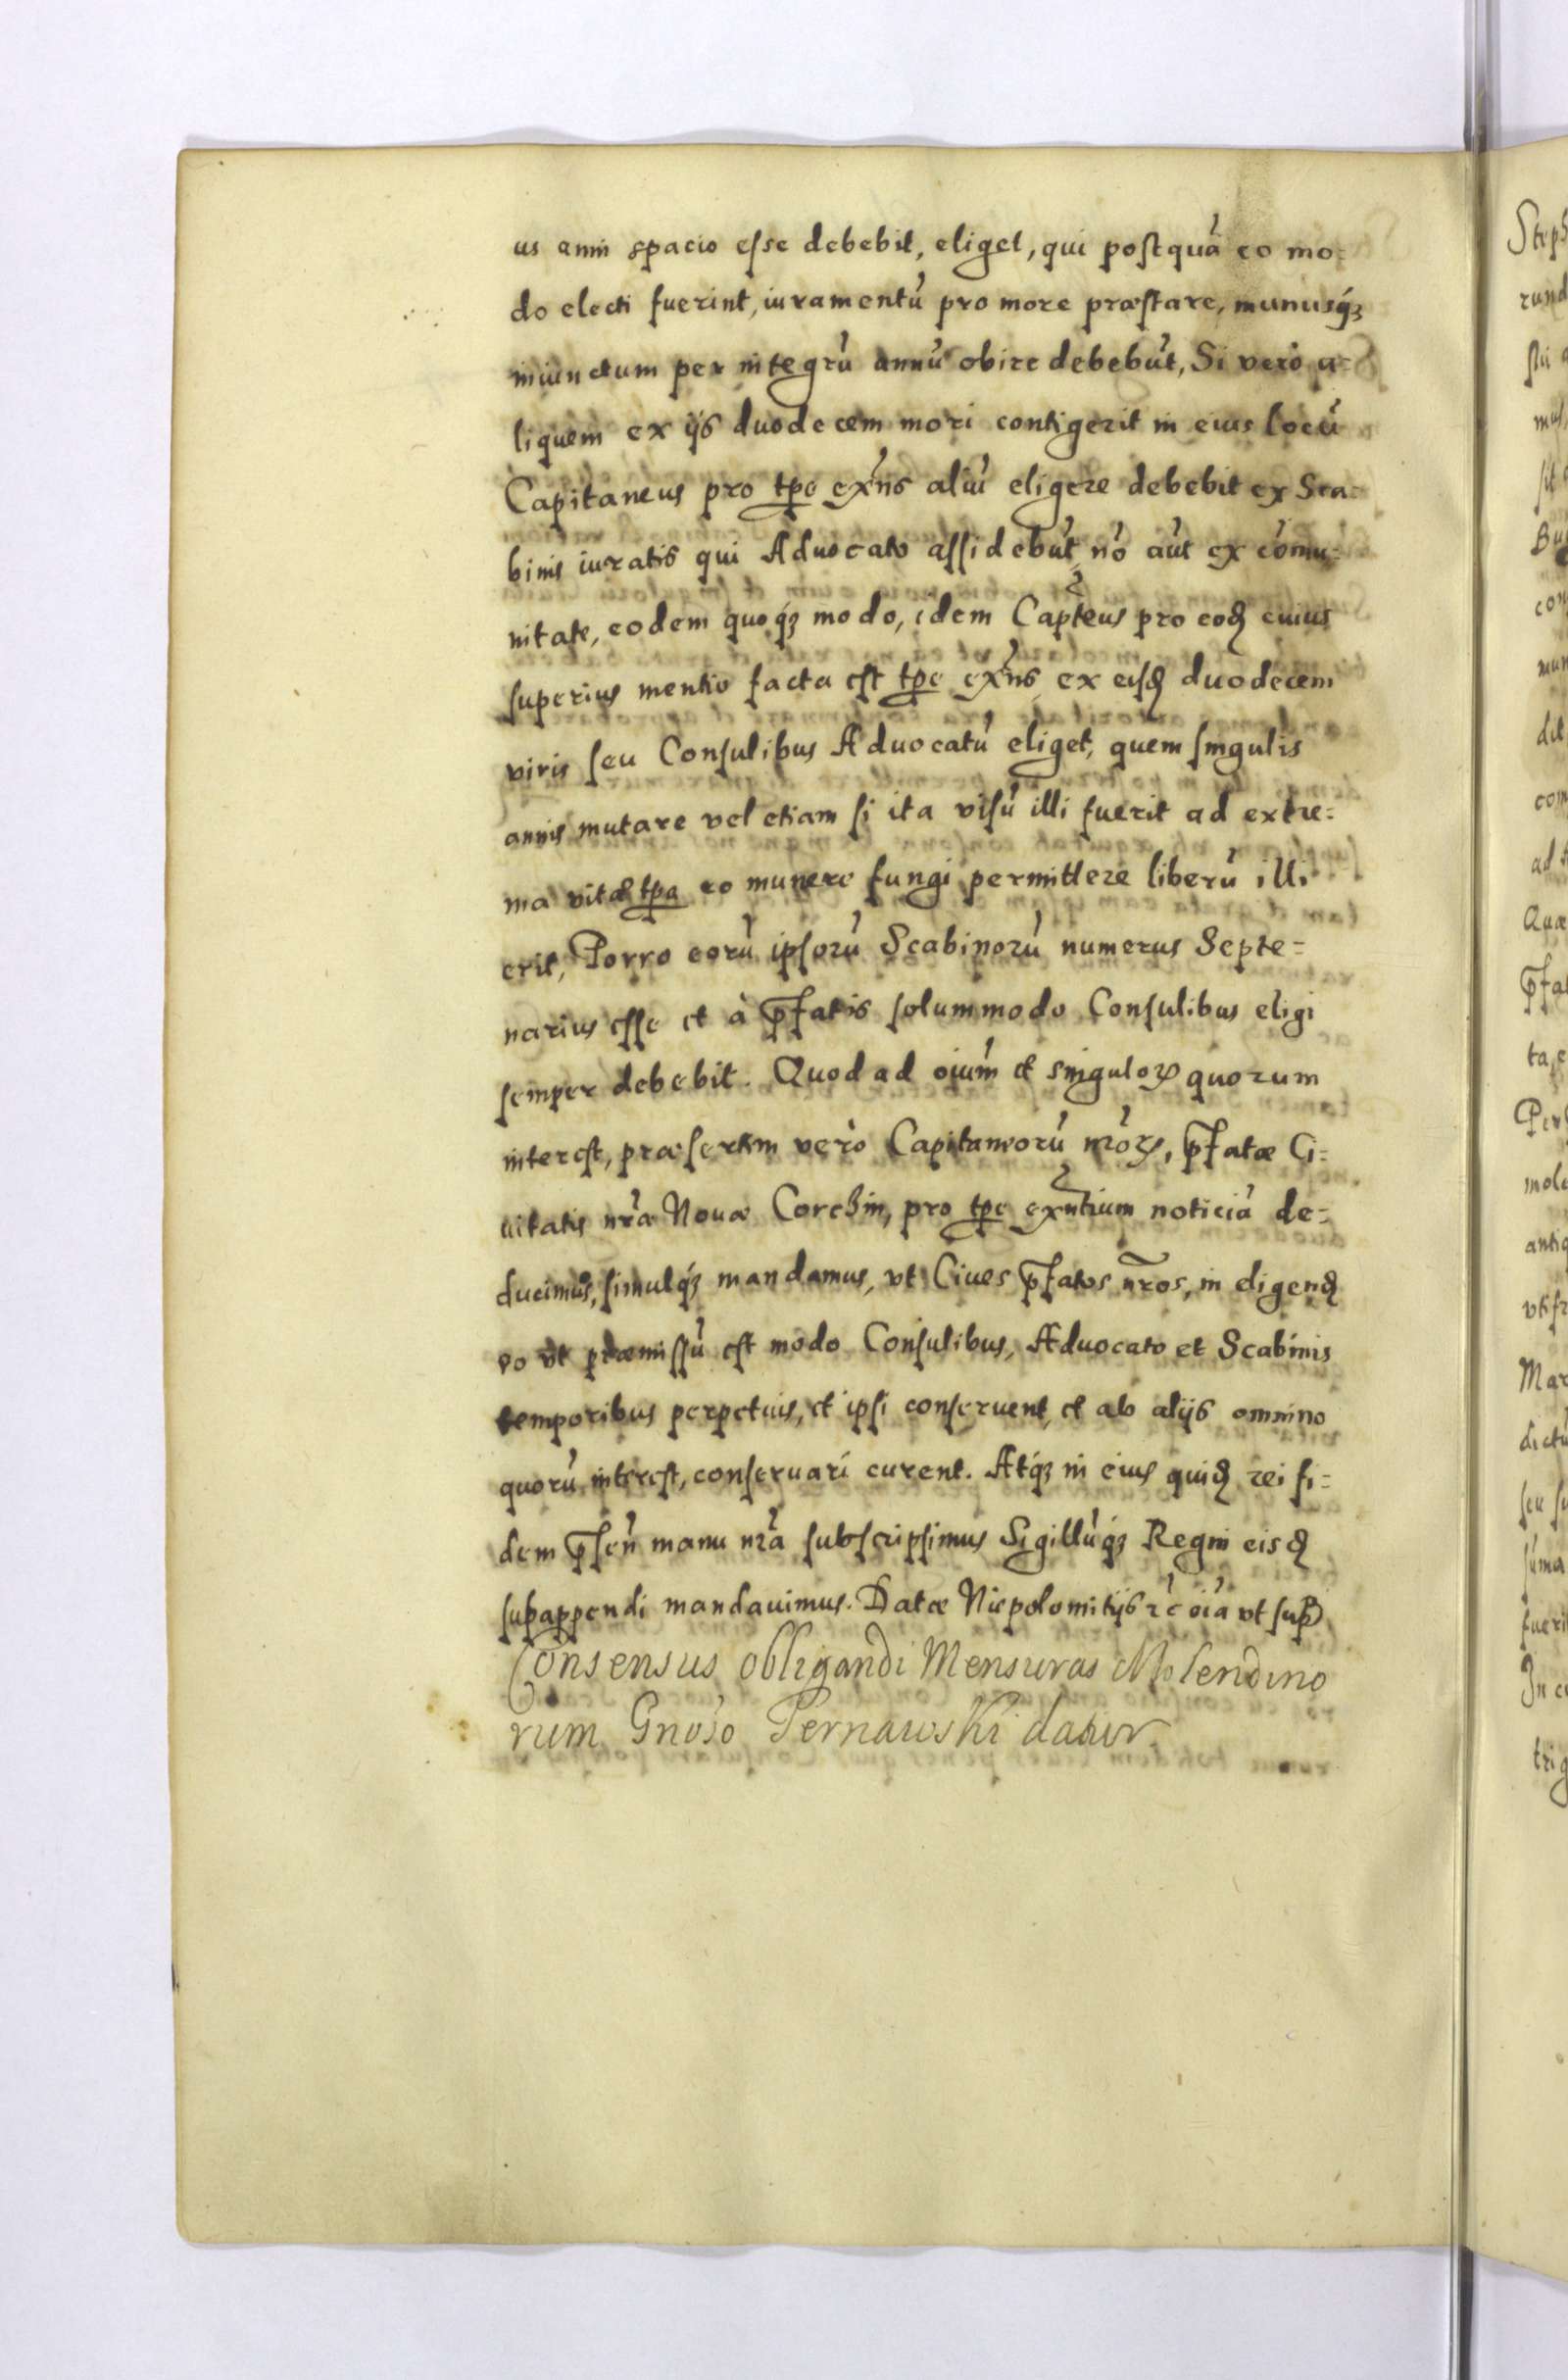 us anni spacio esse debebit, eliget, qui postquā eo mo=
do electi fuerint, iuramentū pro more præstare, munusq́ꝫ
iniunctum per integrū annū obire debebūt, Si verò a=
liquem ex ijs duodecem mori contigerit in eius locū
Capitaneus pro tpe exn̄s aliū eligere debebit ex Sca=
binis iuratis qui Aduocato assidebūt nō aūt ex cōmu=
nitate, eodem quoq́ꝫ modo, idem Capt̄eus pro eođ cuius
superius mentio facta est tpe exn̄s ex eisđ duodecem
viris seu Consulibus Aduocatū eliget, quem singulis
annis mutare vel etiam si ita visū illi fuerit ad extre=
ma vitæ tpa eo munere fungi permittere liberū illi
erit, Porro eorū ipsorū Scabinorū numerus Septe=
narius esse et à p̄fatis solummodo Consulibus eligi
semper debebit. Quod ad oium̄ et singuloꝝ quorum
interest, præsertim verò Capitaneorū nr̄oꝝ, p̄fatæ Ci=
uitatis nr̄æ Nouæ Corchin, pro tpe exn̄tium noticiā de=
ducimus, simulq́ꝫ mandamus, vt Ciues p̄fatos nr̄os, in eligenđ
eo vt præmissū est modo Consulibus, Aduocato et Scabinis
temporibus perpetuis, et ipsi conseruent, et ab alijs omnino
quorū interest, conseruari curent. Atq́ꝫ in eius quiđ rei fi=
dem p̄sen̄ manu nr̄a subscripsimus Sigillūq́ꝫ Regni eisđ
subappendi mandauimus. Datæ Niepolomitijs ꝛc̄ oīa vt sup̄
Consensus obligandi Mensuras Molendino
rum Gnoso Pernawski datur.